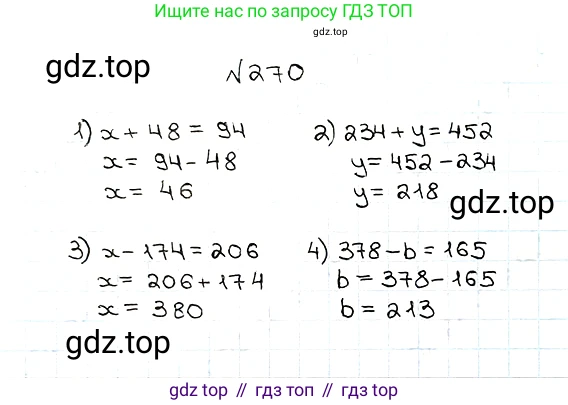 Ищите нас по запросу ГДЗ ТОП
gdz.top
gdz.top
№270
1) x + 48 = 94
x = 94 - 48
x = 46
2) 234 + y = 452
y = 452 - 234
y = 218
gdz.top
3) x - 174 = 206
x = 206 + 174
x = 380
4) 378 - b = 165
b = 378 - 165
b = 213
gdz.top
gdz.top // гдз.топ // гдз топ